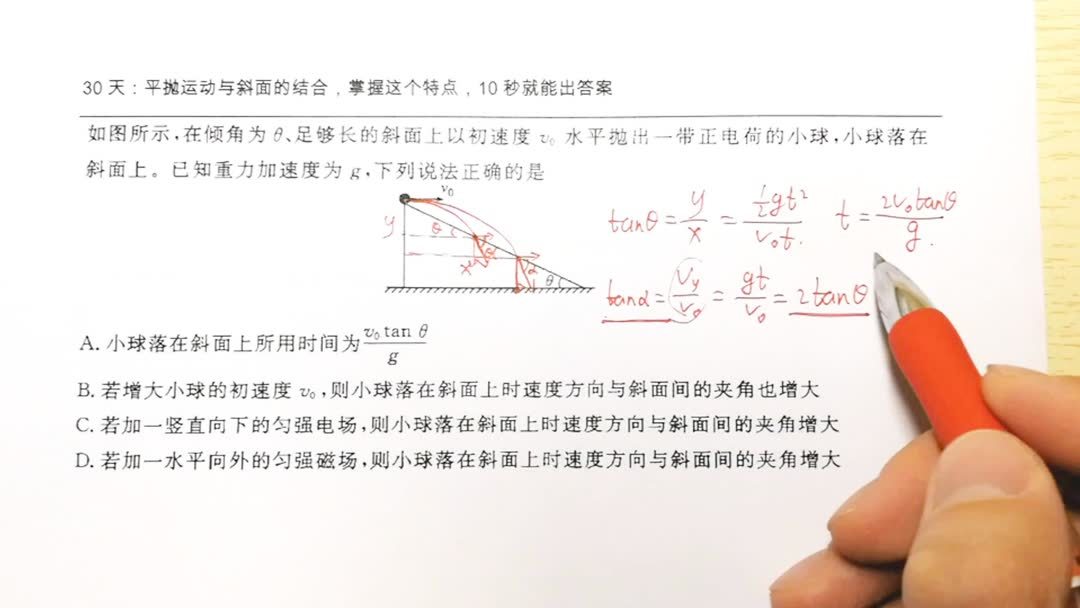 30 天：平抛运动与斜面的结合，掌握这个特点，10 秒就能出答案
如图所示，在倾角为 θ、足够长的斜面上以初速度 v₀ 水平抛出一带正电荷的小球，小球落在
斜面上。已知重力加速度为 g，下列说法正确的是
v₀
y
θ
x
θ
α
θ
tanθ = y/x = ½gt²/v₀t. t = 2v₀tanθ/g.
tanα = v_y/v₀ = gt/v₀ = 2tanθ
A. 小球落在斜面上所用时间为 v₀ tan θ/g
B. 若增大小球的初速度 v₀，则小球落在斜面上时速度方向与斜面间的夹角也增大
C. 若加一竖直向下的匀强电场，则小球落在斜面上时速度方向与斜面间的夹角增大
D. 若加一水平向外的匀强磁场，则小球落在斜面上时速度方向与斜面间的夹角增大